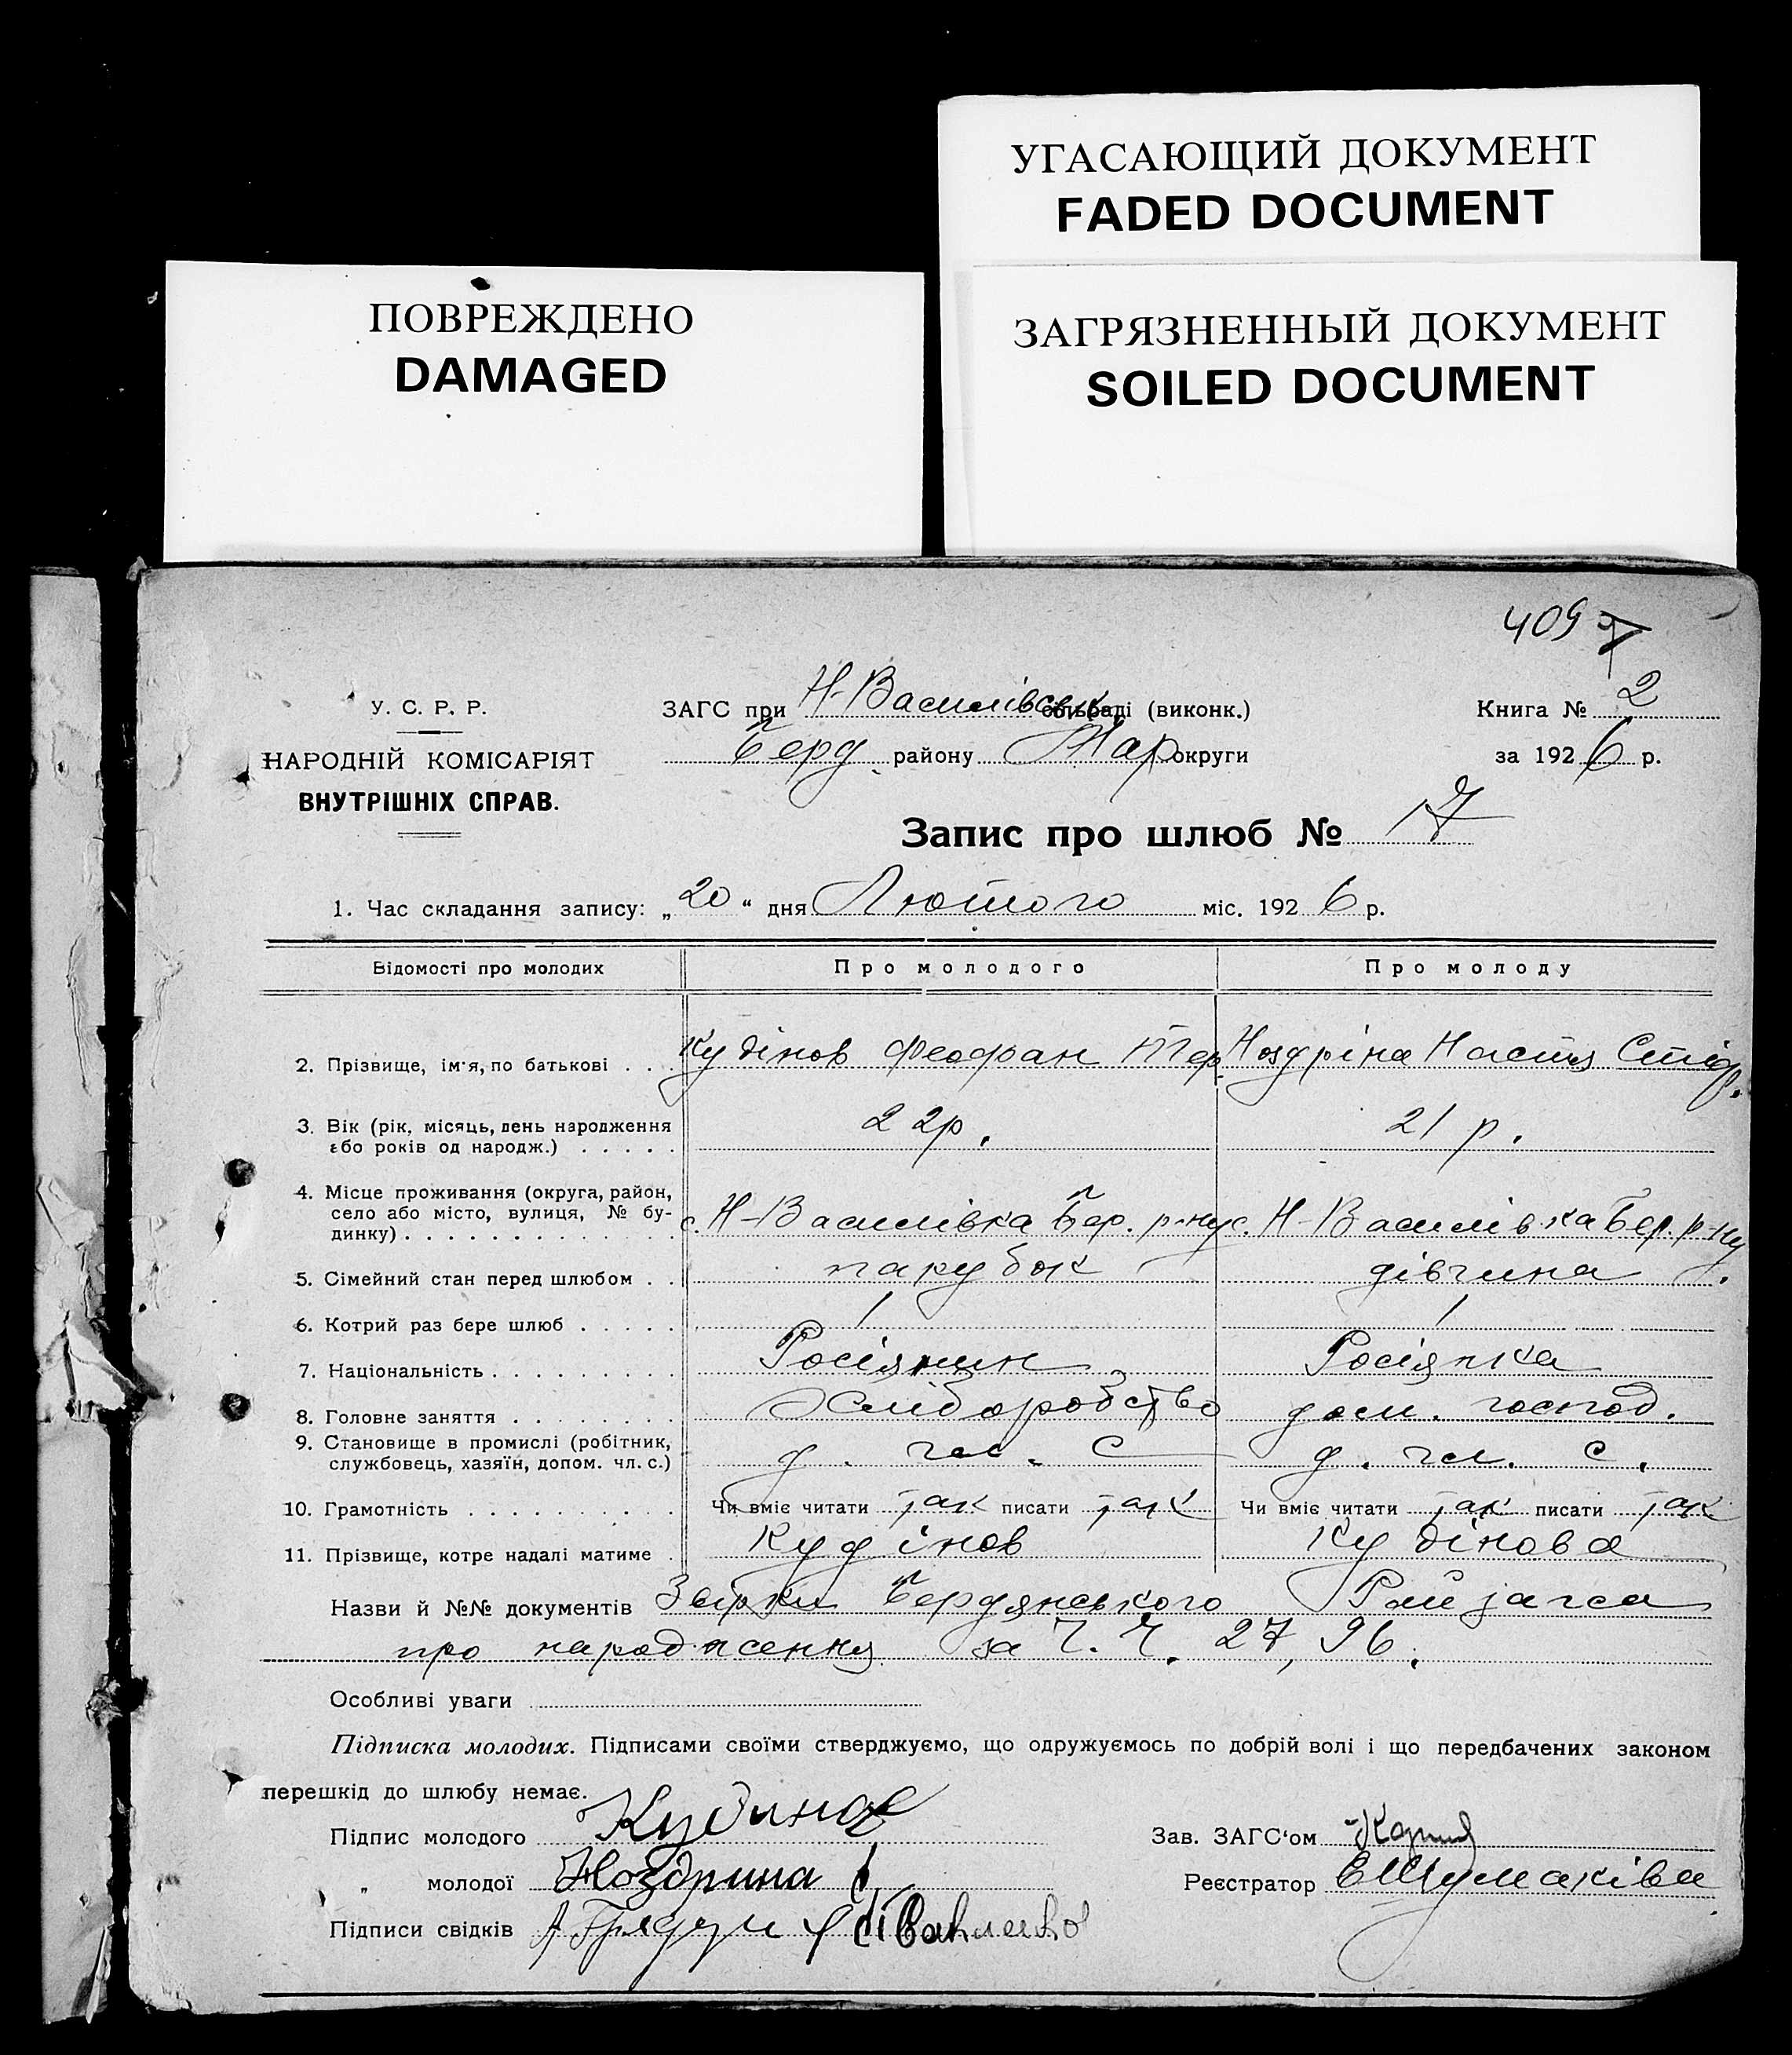 УГАСАЮЩИЙ ДОКУМЕНТ
FADED DOCUMENT
ПОВРЕЖДЕНО
DAMAGED
ЗАГРЯЗНЕННЫЙ ДОКУМЕНТ
SOILED DOCUMENT
409
У. С. Р. Р.
НАРОДНІЙ КОМІСАРІЯТ
ВНУТРІШНІХ СПРАВ.
ЗАГС при Н-Василівськ. сільраді (виконк.)
Берд. району Мар округи
Книга № 2
за 1926 р.
Запис про шлюб № 17
1. Час складання запису: „20“ дня Лютого міс. 1926 р.
Відомості про молодих Про молодого Про молоду
2. Прізвище, ім'я, по батькові . . . Кудінов Феофан Тер. Ноздріна Настя Стеф.
3. Вік (рік, місяць, день народження або років од народж.) . . . . . 22р. 21 р.
4. Місце проживання (округа, район, село або місто, вулиця, № будинку) . . . с. Н-Василівка Бер. р-ну с. Н-Василівка Бер. р-ну.
5. Сімейний стан перед шлюбом . . парубок дівчина
6. Котрий раз бере шлюб . . . . . 1 1
7. Національність . . . . . . . . . Росіянин Росіянка
8. Головне заняття . . . . . . . . Хліборобство дом. господ.
9. Становище в промислі (робітник, службовець, хазяїн, допом. чл. с.) д. чл. с д. чл. с.
10. Грамотність . . . . . . . . . . Чи вміє читати так писати так Чи вміє читати так писати так
11. Прізвище, котре надалі матиме . Кудінов Кудінова
Назви й №№ документів Бердянського Райзагса
про народження за Ч. Ч. 27, 96.
Особливі уваги
Підписка молодих. Підписами своїми стверджуємо, що одружуємось по добрій волі і що передбачених законом
перешкід до шлюбу немає.
Підпис молодого Кудинов
„ молодої Ноздрина
Підписи свідків
Зав. ЗАГС'ом
Реєстратор ЕШумаківа